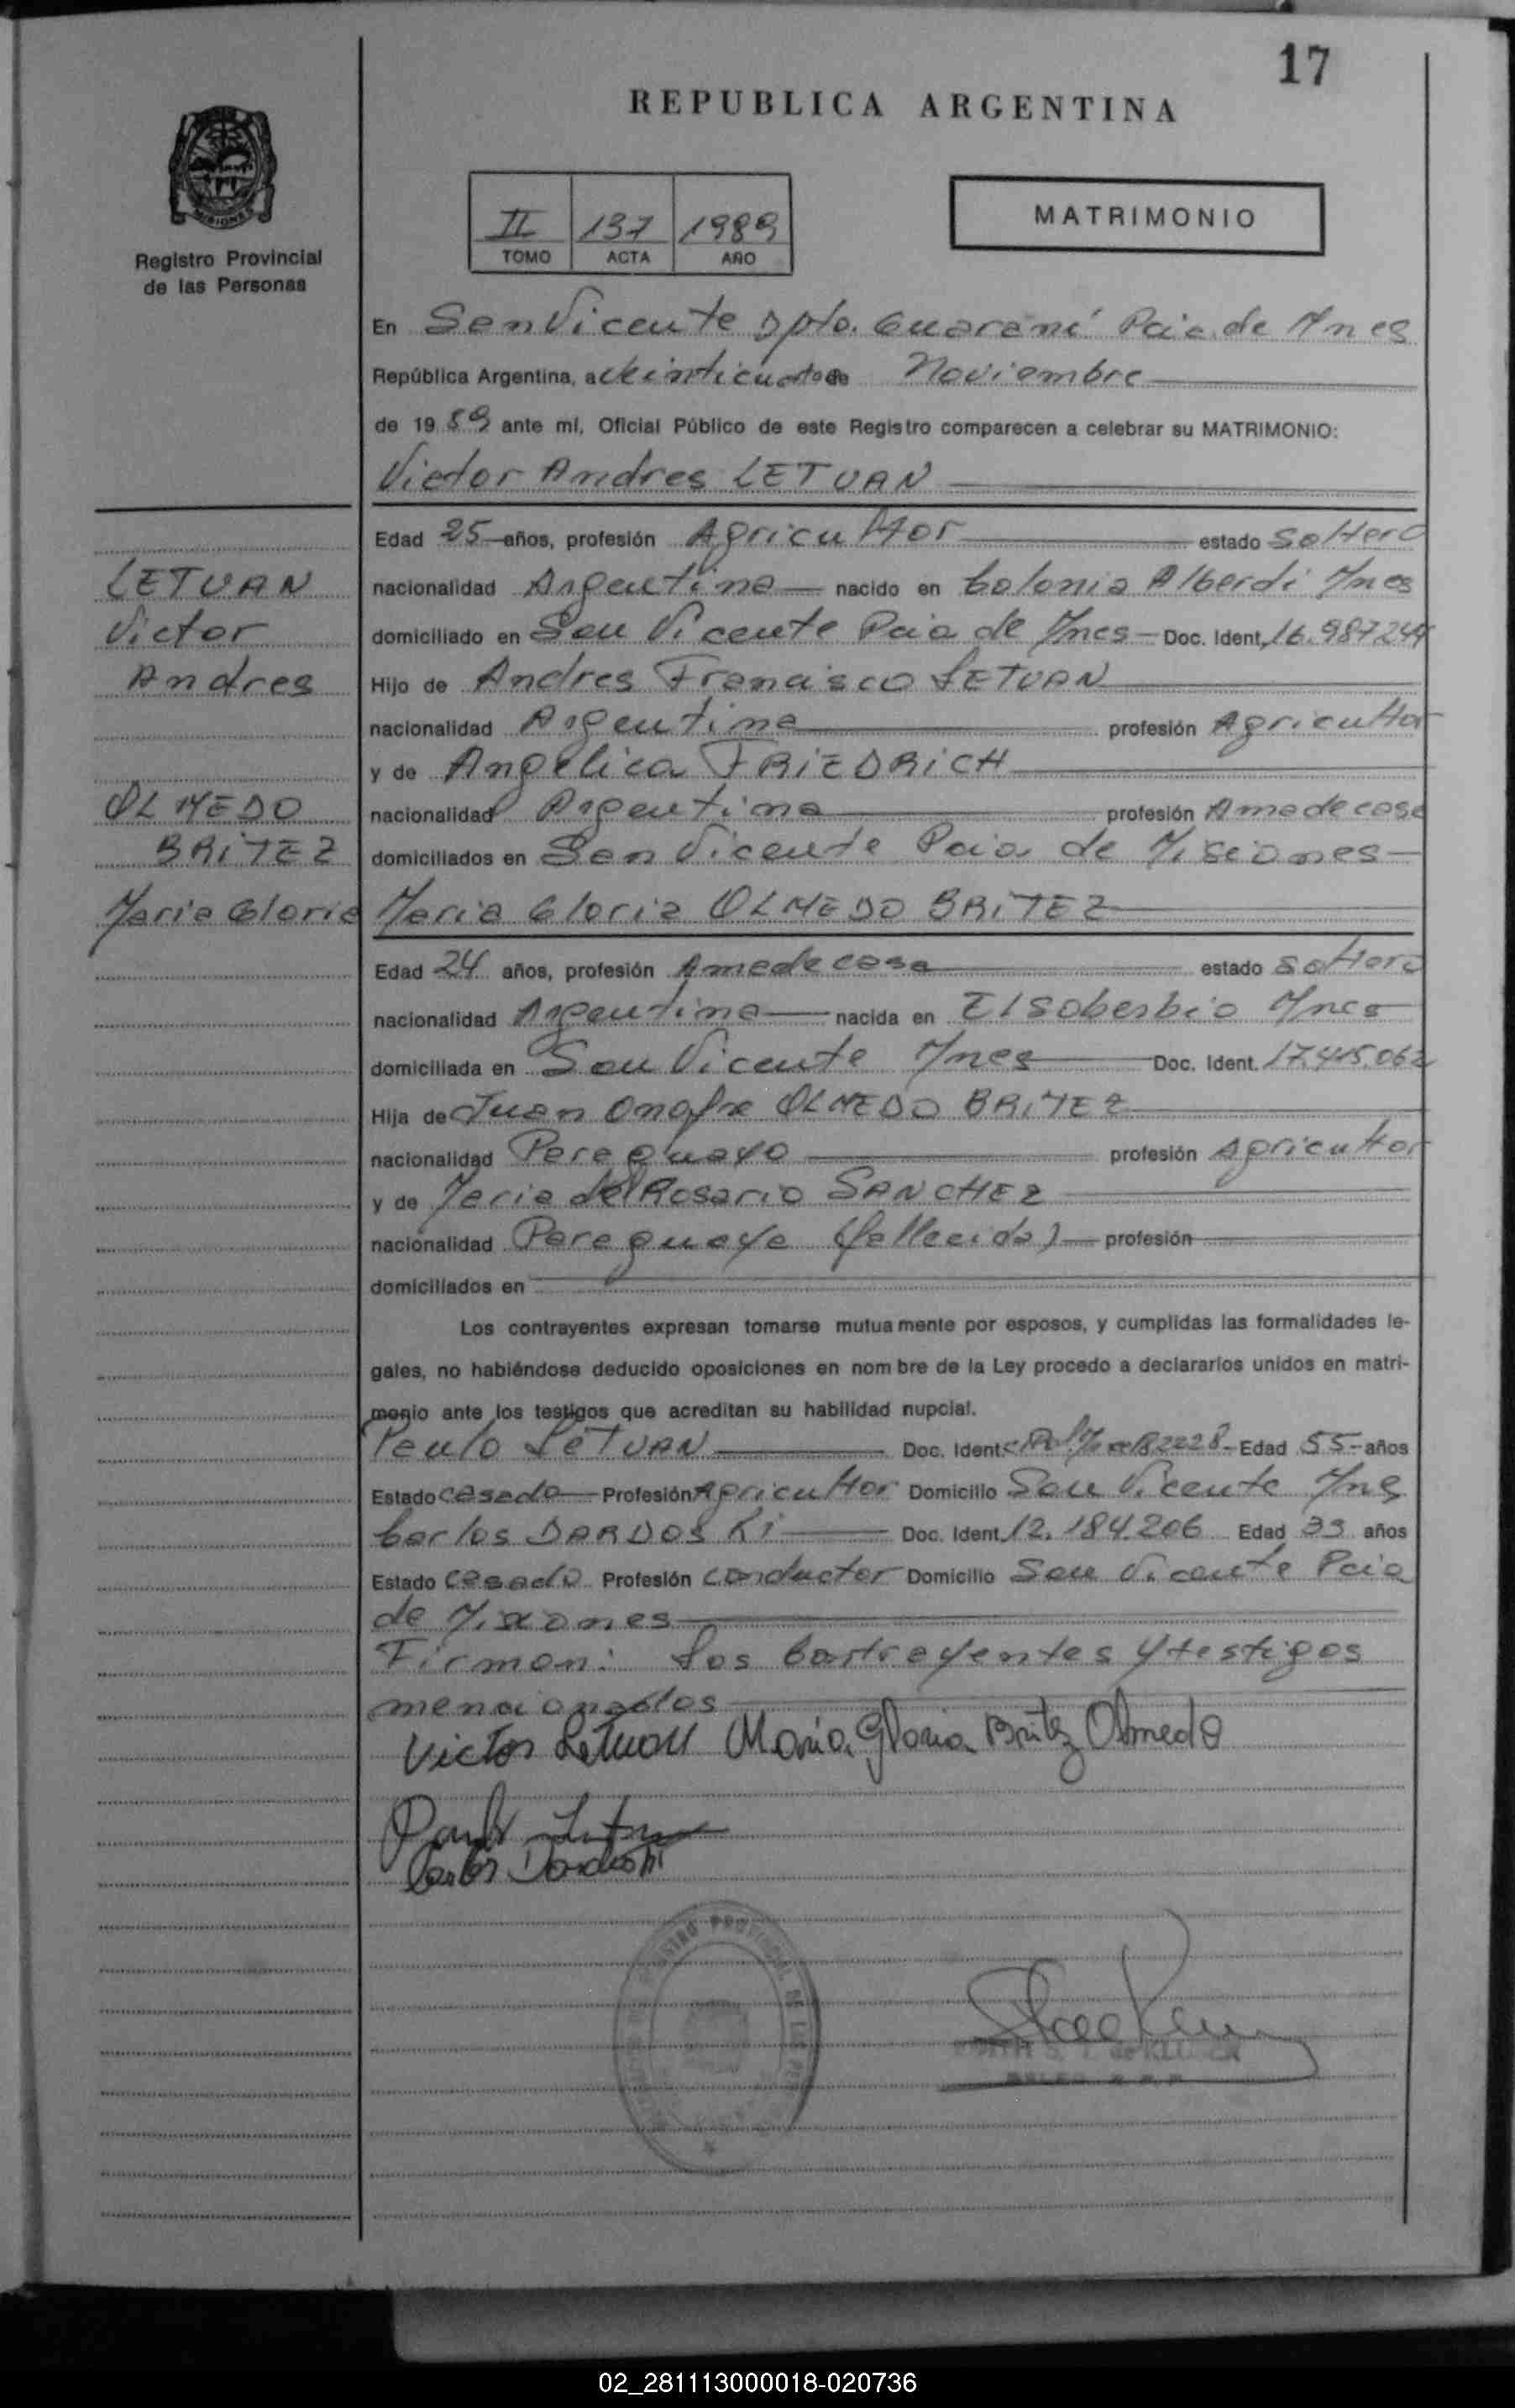 17
REPUBLICA ARGENTINA
MISIONES
Registro Provincial
de las Personas
II 137 1989
TOMO ACTA AÑO
MATRIMONIO
En San Vicente Dpto. Guaraní Pcia de Mnes
República Argentina, a Veinticuatro de Noviembre
de 1989 ante mí, Oficial Público de este Registro comparecen a celebrar su MATRIMONIO:
Victor Andres LETUAN
Edad 25 años, profesión Agricultor estado Soltero
LETUAN
nacionalidad Argentina nacido en Colonia Alberdi Mnes
Victor
domiciliado en San Vicente Pcia de Mnes Doc. Ident. 16.987.244
Andres
Hijo de Andres Francisco LETUAN
nacionalidad Argentina profesión Agricultor
y de Angelica FRIEDRICH
OLMEDO
nacionalidad Argentina profesión Ama de casa
BRITEZ
domiciliados en San Vicente Pcia de Misiones
Maria Gloria
Maria Gloria OLMEDO BRITEZ
Edad 24 años, profesión Ama de casa estado Soltera
nacionalidad Argentina nacida en El Soberbio Mnes
domiciliada en San Vicente Mnes Doc. Ident. 17.415.062
Hija de Juan Onofre OLMEDO BRITEZ
nacionalidad Paraguayo profesión Agricultor
y de Maria del Rosario SANCHEZ
nacionalidad Paraguaya (fallecida) profesión
domiciliados en
Los contrayentes expresan tomarse mutuamente por esposos, y cumplidas las formalidades le-
gales, no habiéndose deducido oposiciones en nombre de la Ley procedo a declararlos unidos en matri-
monio ante los testigos que acreditan su habilidad nupcial.
Paulo LETUAN Doc. Ident. Edad 55 años
Estado casado Profesión Agricultor Domicilio San Vicente Mnes
Carlos DARDOSKI Doc. Ident. 12.184.206 Edad 33 años
Estado Casado Profesión conductor Domicilio San Vicente Pcia
de Misiones
Firman: Los Contrayentes y testigos
mencionados
Victor Letuan Maria Gloria Britez Olmedo
Carlos Dardoski
REGISTRO PROVINCIAL DE LAS
02_281113000018-020736